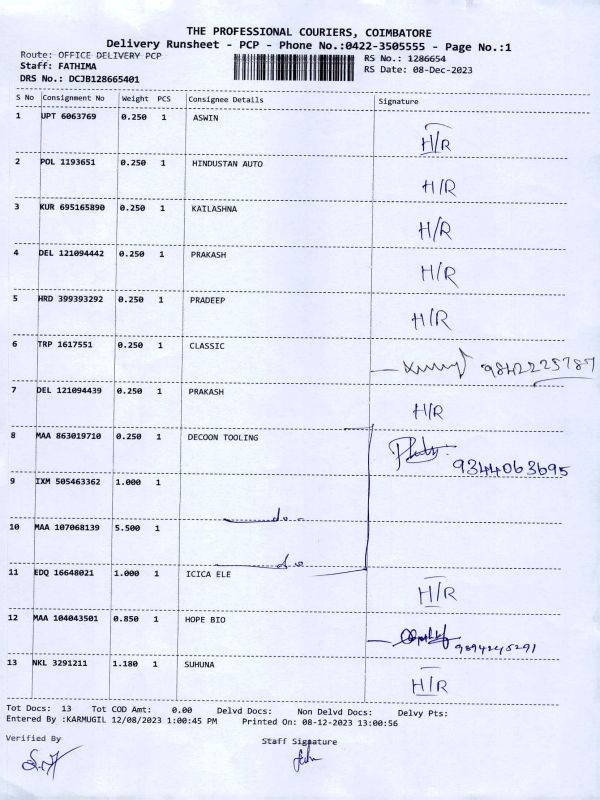 THE PROFESSIONAL COURIERS, COIMBATORE
Delivery Runsheet - PCP - Phone No.:0422-3505555 - Page No.:1
Route: OFFICE DELIVERY PCP RS No.: 1286654
Staff: FATHIMA RS Date: 08-Dec-2023
DRS No.: DCJB128665401
S No Consignment No Weight PCS Consignee Details Signature
1 UPT 6063769 0.250 1 ASWIN H/R
2 POL 1193651 0.250 1 HINDUSTAN AUTO H/R
3 KUR 695165890 0.250 1 KAILASHNA H/R
4 DEL 121094442 0.250 1 PRAKASH H/R
5 HRD 399393292 0.250 1 PRADEEP H/R
6 TRP 1617551 0.250 1 CLASSIC 9842225787
7 DEL 121094439 0.250 1 PRAKASH H/R
8 MAA 863019710 0.250 1 DECOON TOOLING 9344063695
9 IXM 505463362 1.000 1 do
10 MAA 107068139 5.500 1 do
11 EDQ 16648021 1.000 1 ICICA ELE H/R
12 MAA 104043501 0.850 1 HOPE BIO 9894245291
13 NKL 3291211 1.180 1 SUHUNA H/R
Tot Docs: 13 Tot COD Amt: 0.00 Delvd Docs: Non Delvd Docs: Delvy Pts:
Entered By :KARMUGIL 12/08/2023 1:00:45 PM Printed On: 08-12-2023 13:00:56
Verified By Staff Signature